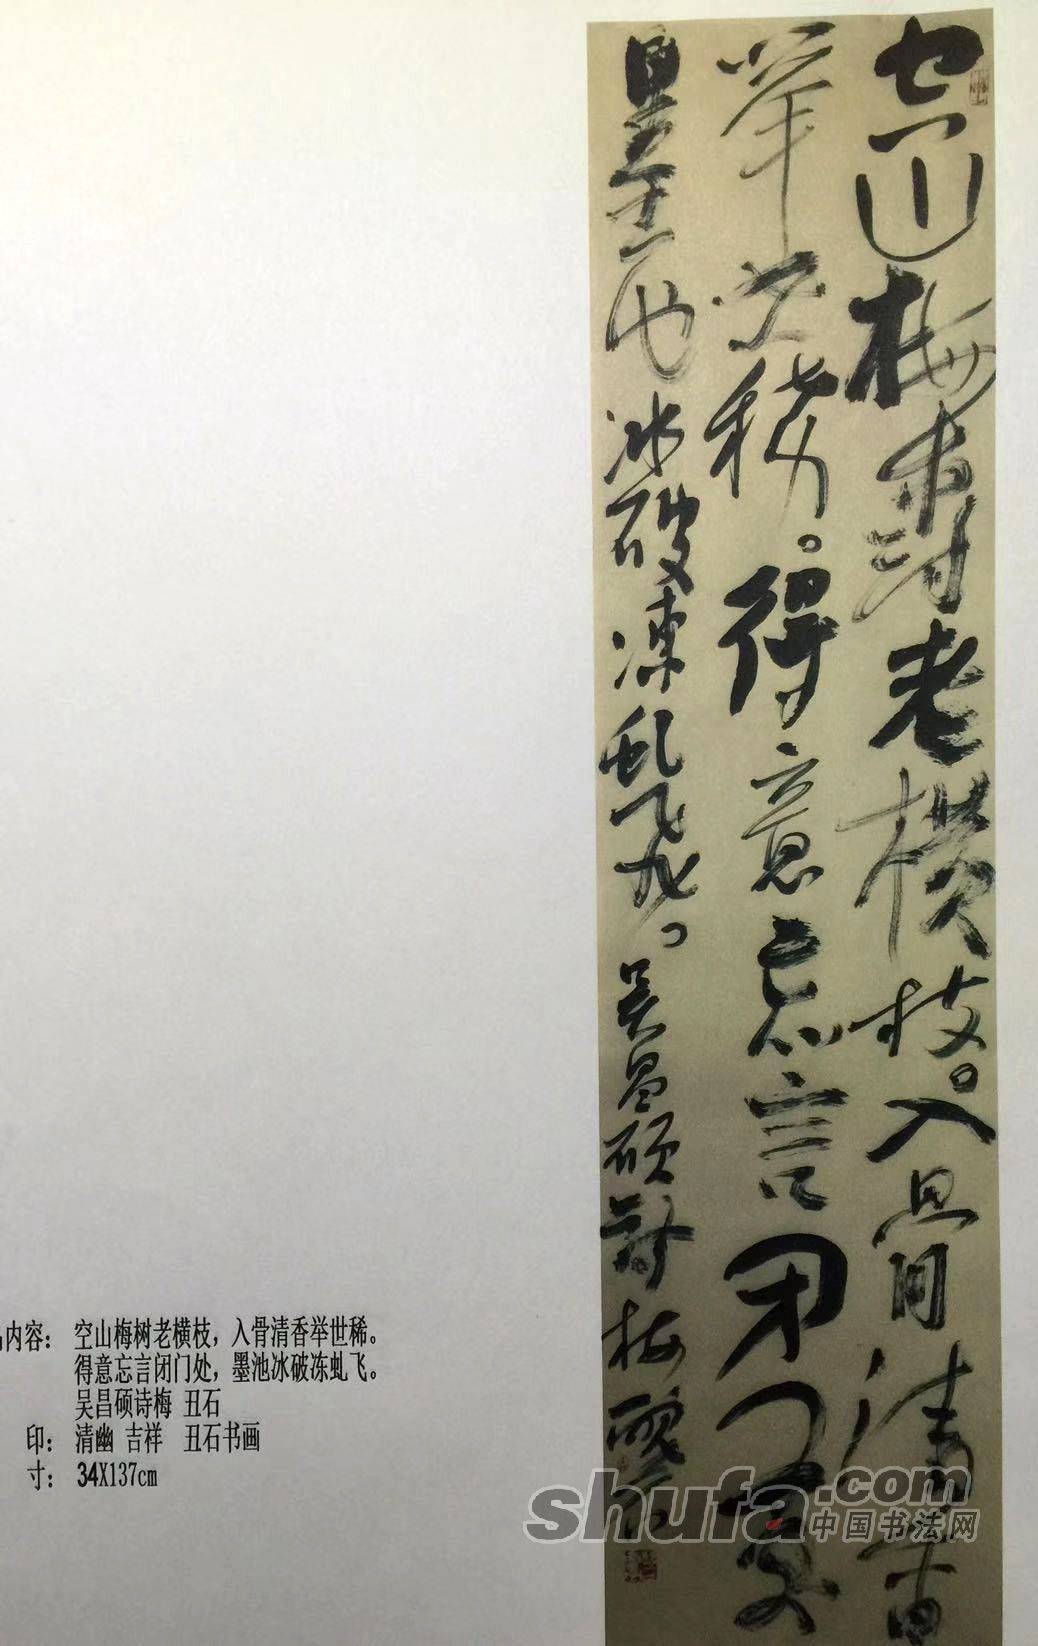 空山梅树老横枝。入骨清香
举世稀。得意忘言闭门处
墨池冰破冻虬飞。吴昌硕诗梅 醜石
品内容： 空山梅树老横枝，入骨清香举世稀。
得意忘言闭门处，墨池冰破冻虬飞。
吴昌硕诗梅 丑石
印： 清幽 吉祥 丑石书画
寸： 34X137cm
shufa.com
中国书法网